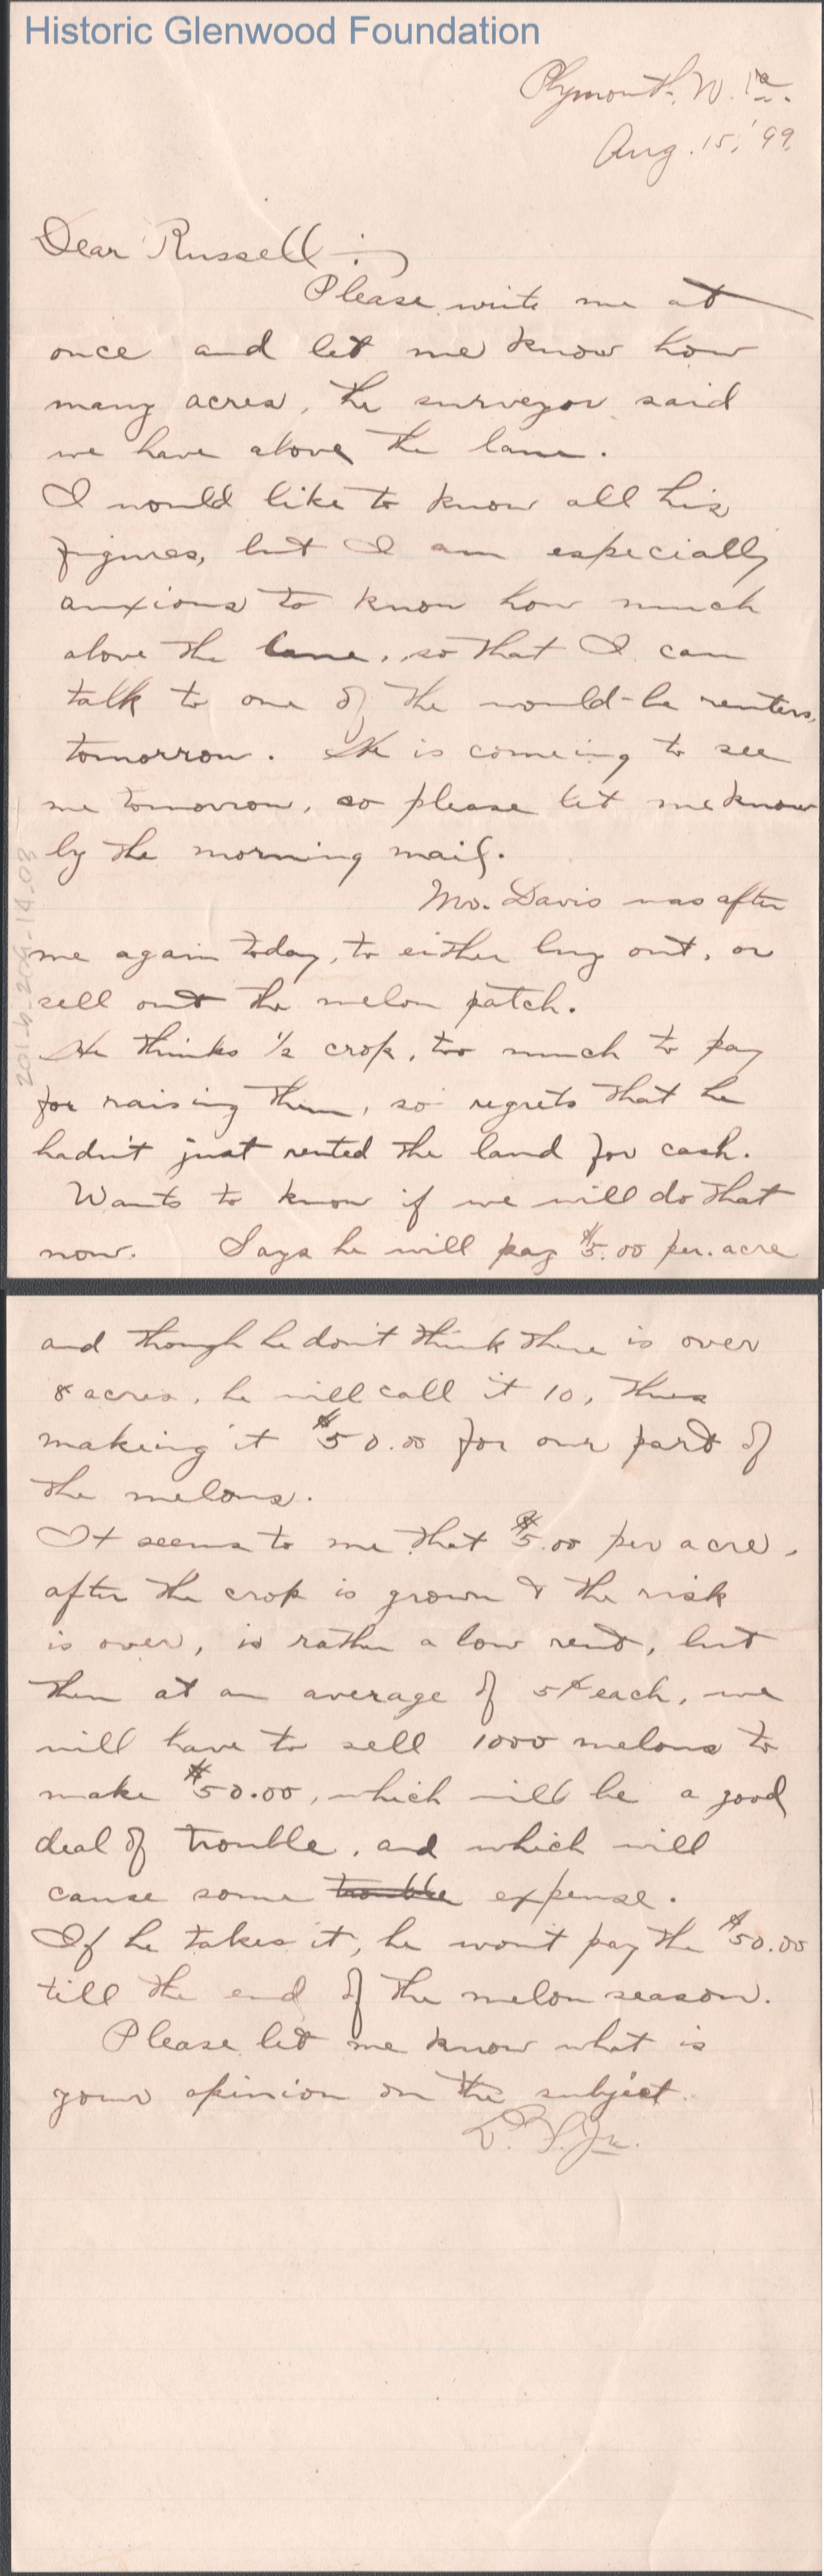 Historic Glenwood Foundation
Plymouth, W. Va.
Aug. 15, '99.
Dear Russell :-
Please write me at
once and let me know how
many acres, the surveyor said
we have above the lane.
I would like to know all his
figures, but I am especially
anxious to know how much
above the lane, so that I can
talk to one of the would-be renters,
tomorrow. He is comeing to see
me tomorrow, so please let me know
by the morning mail.
Mr. Davis was after
me again today, to either buy out, or
sell out the melon patch.
He thinks 1/2 crop, too much to pay
for raising them, so regrets that he
hadn't just rented the land for cash.
Wants to know if we will do that
now. Says he will pay $5.00 per. acre
and though he don't think there is over
8 acres, he will call it 10, thus
making it $50.00 for our part of
the melons.
It seems to me that $5.00 per acre,
after the crop is grown & the risk
is over, is rather a low rent, but
then at an average of 5¢ each, we
will have to sell 1000 melons to
make $50.00, which will be a good
deal of trouble, and which will
cause some trouble expense.
If he takes it, he won't pay the $50.00
till the end of the melon season.
Please let me know what is
your opinion on the subject.
Jr.